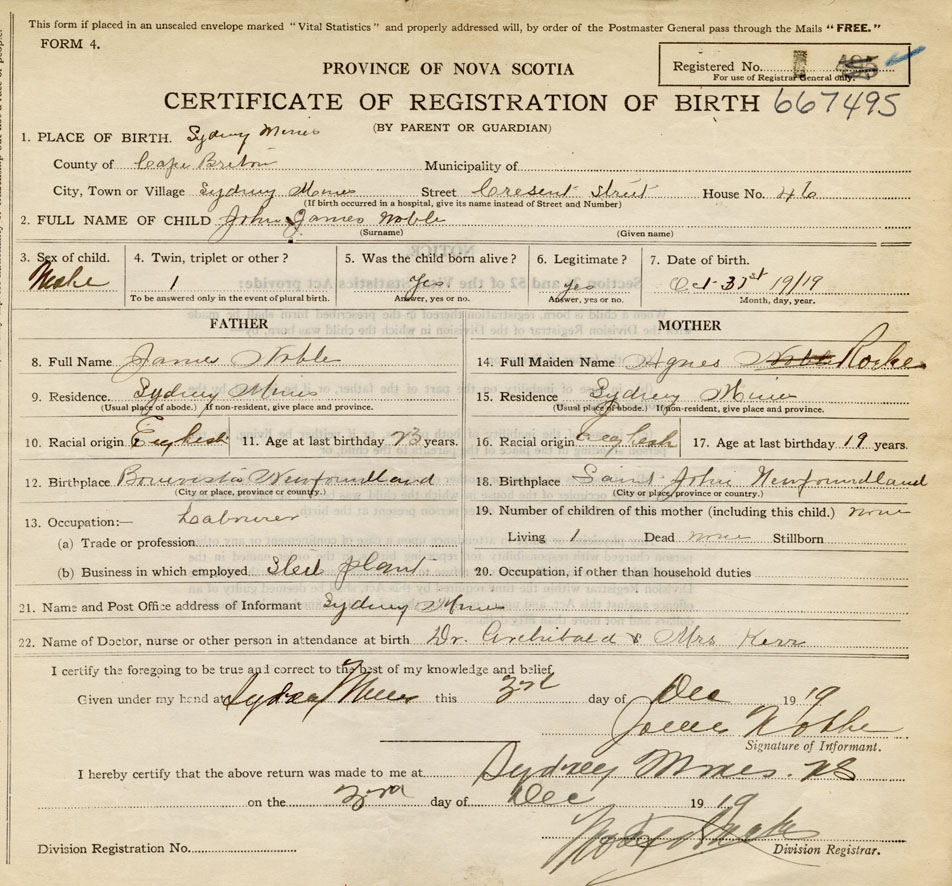 This form if placed in an unsealed envelope marked "Vital Statistics" and properly addressed will, by order of the Postmaster General pass through the Mails "FREE."
FORM 4.
Registered No.
For use of Registrar General only.
PROVINCE OF NOVA SCOTIA
CERTIFICATE OF REGISTRATION OF BIRTH 667495
(BY PARENT OR GUARDIAN)
1. PLACE OF BIRTH. Sydney Mines
County of Cape Breton Municipality of
City, Town or Village Sydney Mines Street Cresent Street House No. 46
(If birth occurred in a hospital, give its name instead of Street and Number)
2. FULL NAME OF CHILD John James Noble
(Surname) (Given name)
3. Sex of child. 4. Twin, triplet or other? 5. Was the child born alive? 6. Legitimate? 7. Date of birth.
Male 1 Yes. Yes Oct 31st 19/19
To be answered only in the event of plural birth. Answer, yes or no. Answer, yes or no. Month, day, year.
FATHER
8. Full Name James Noble
9. Residence. Sydney Mines
(Usual place of abode.) If non-resident, give place and province.
10. Racial origin English 11. Age at last birthday 23 years.
12. Birthplace Bonevista Newfoundland
(City or place, province or country.)
13. Occupation:— Labourer
(a) Trade or profession
(b) Business in which employed Steil plant
MOTHER
14. Full Maiden Name Agnes Noble Roche
15. Residence Sydney Mines
(Usual place of abode.) If non-resident, give place and province.
16. Racial origin English 17. Age at last birthday 19 years.
18. Birthplace Saint John Newfoundland
(City or place, province or country.)
19. Number of children of this mother (including this child.) none
Living 1 Dead none Stillborn
20. Occupation, if other than household duties
21. Name and Post Office address of Informant Sydney Mines
22. Name of Doctor, nurse or other person in attendance at birth Dr. Archibald & Mrs Kerr
I certify the foregoing to be true and correct to the best of my knowledge and belief.
Given under my hand at Sydney Mines this 3rd day of Dec 1919
James Noble
Signature of Informant.
I hereby certify that the above return was made to me at Sydney Mines. NS
on the 3rd day of Dec 1919
Division Registration No. Division Registrar.